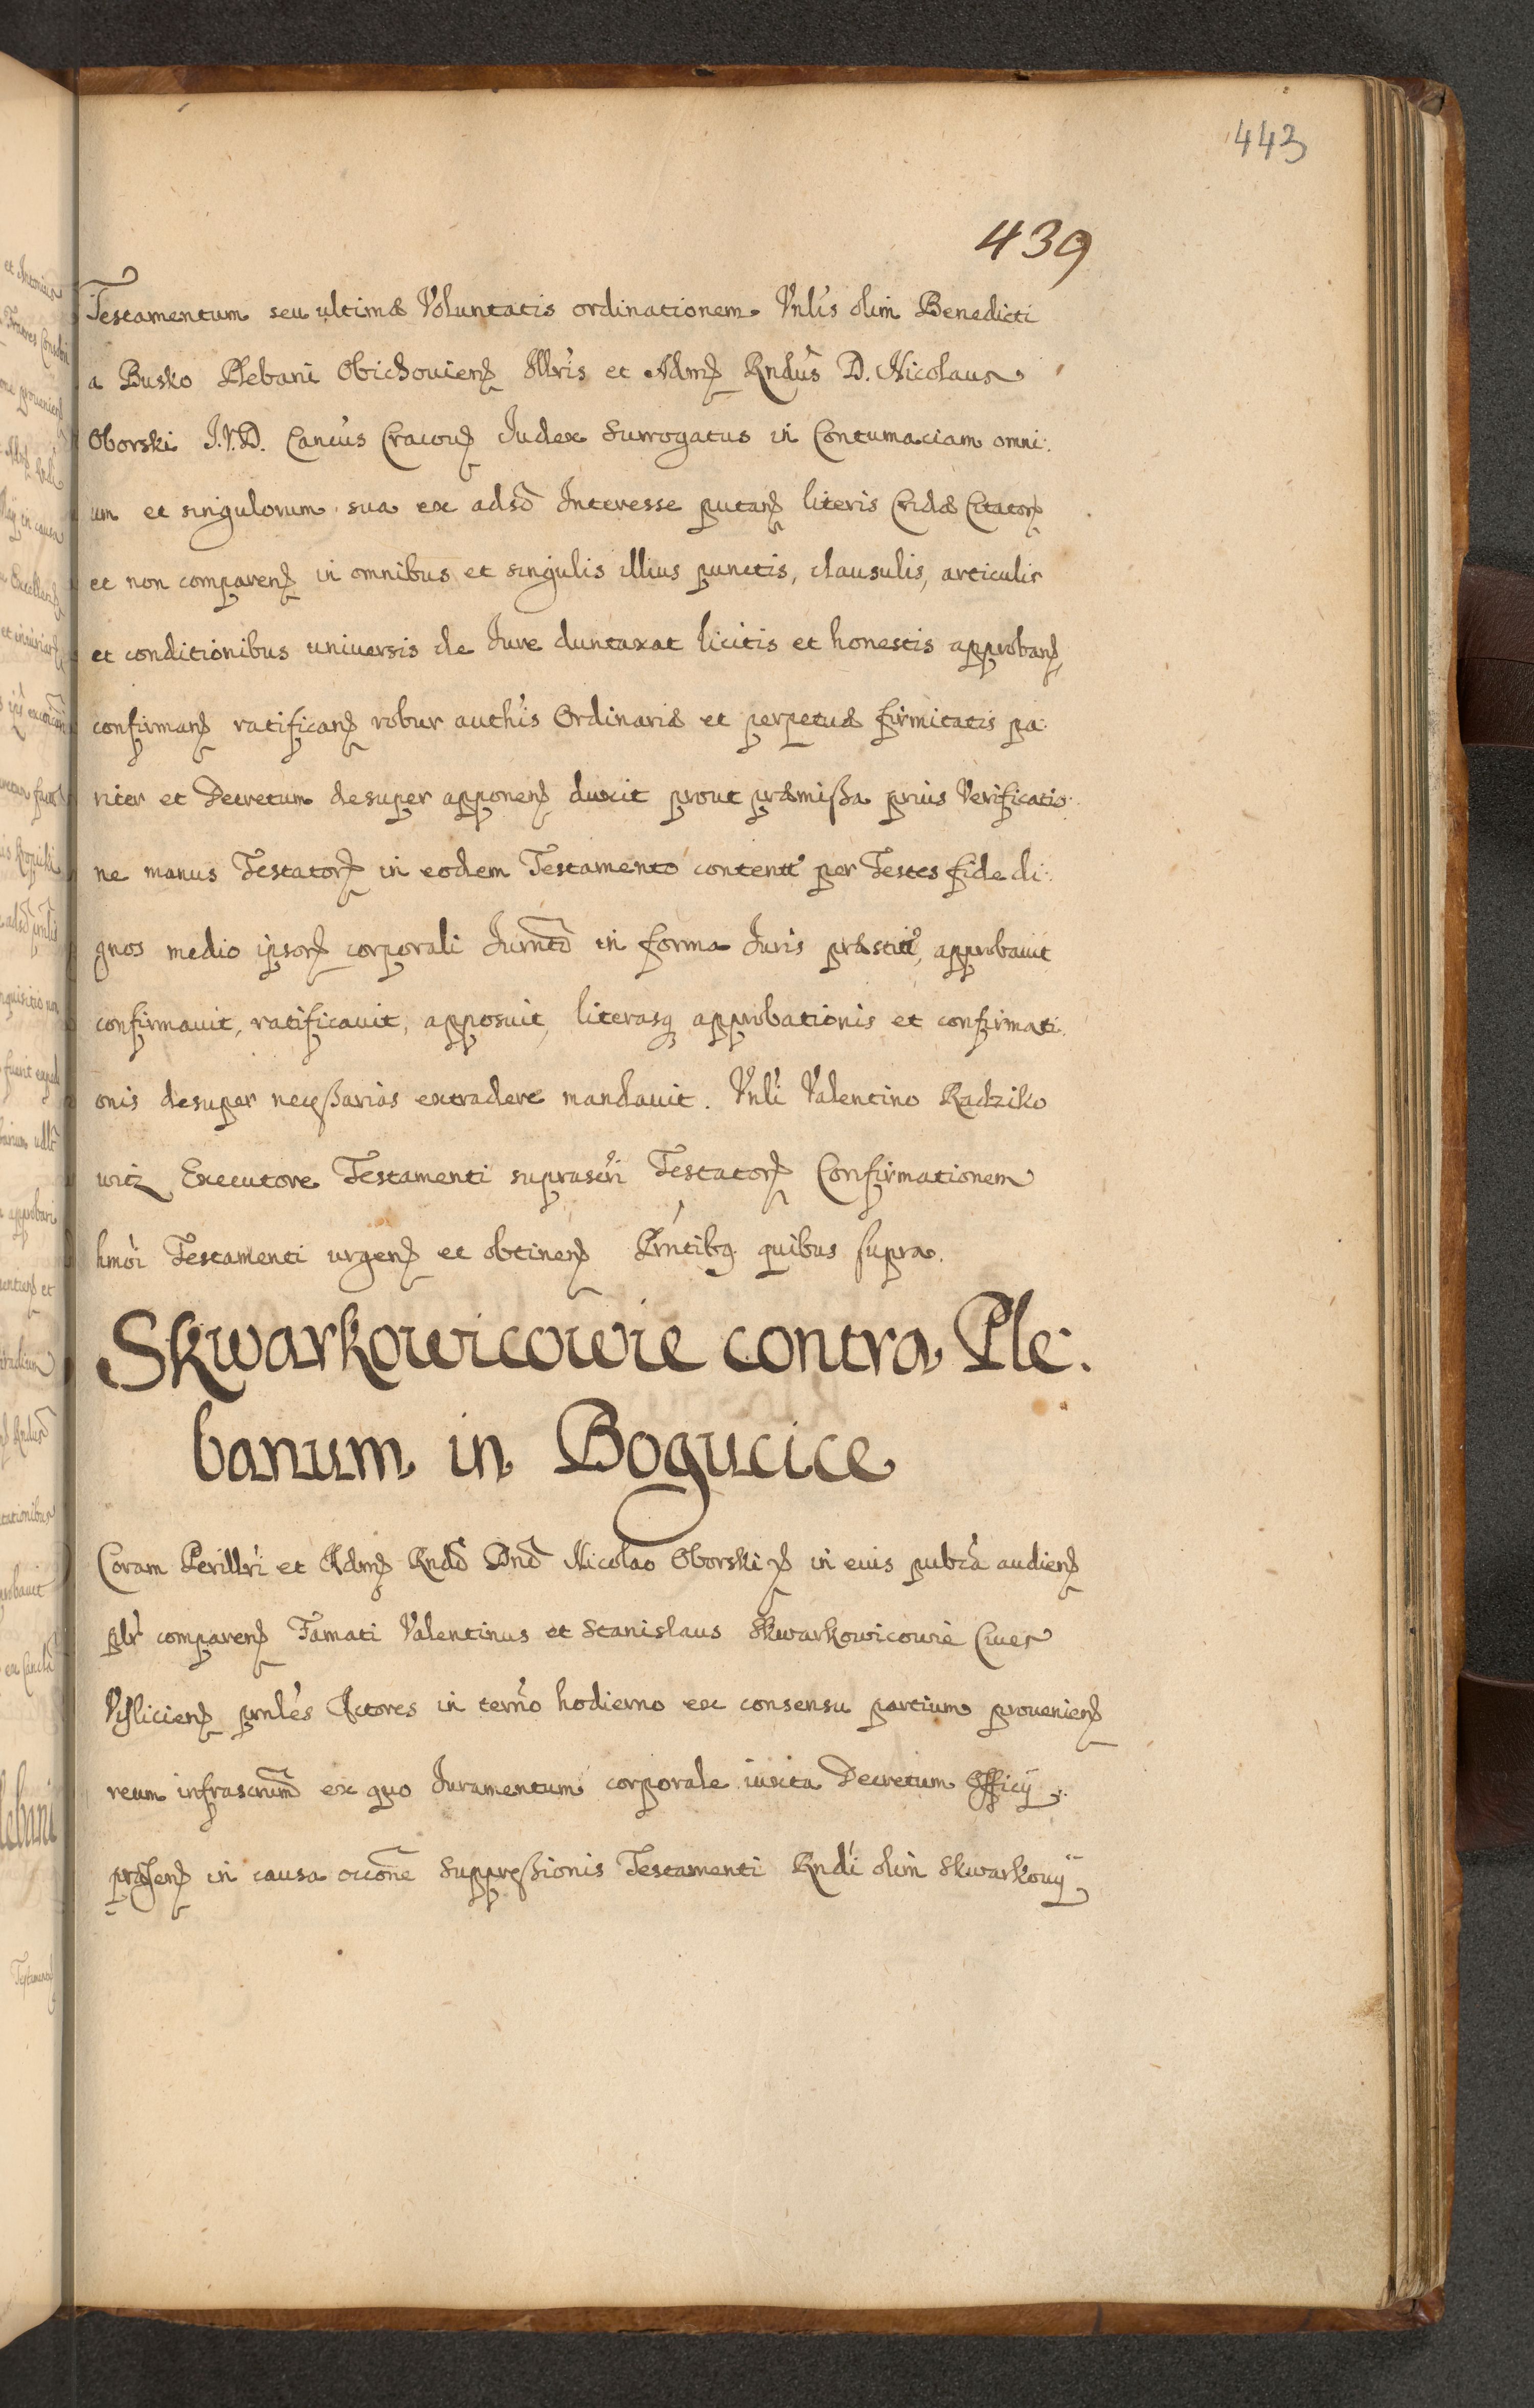 443
439
Testamentum seu ultimæ Voluntatis ordinationem Vnlis olim Benedicti
a Busko Plebani Obichouien Illris et Adm Rndus D. Nicolaus
Oborski J.V.D. Cancus Cracou Judex Surrogatus in Contumaciam omni:
um et singulorum sua ex adso Interesse putan literis Cridæ Citator
et non comparen in omnibus et singulis illius punctis, clausulis, articulis
et conditionibus uniuersis de Jure duntaxat licitis et honestis approban,
confirman ratifican robur authis Ordinariæ et perpetuæ firmitatis pa:
riter et Decretum desuper apponen duxit prout præmißa prius Verificatio:
ne manus Testator in eodem Testamento content per Testes fide di:
gnos medio ipsor corporali Jurnto in forma Juris præstit, approbauit
confirmauit, ratificauit, apposuit, literasq approbationis et confirmati:
onis desuper neceßarias extradere mandauit. Vnli Valentino Radziko
witz Executore Testamenti suprascri Testator Confirmationem
hmoi Testamenti urgen et obtinen Prntibq quibus supra.
Skwarkowicowie contra Ple:
banum in Bogucice
Coram Perillri et Adm Rndo Dno Nicolao Oborski in euis pubca audien
plr comparen Famati Valentinus et Stanislaus Skwarkowicowie Ciues
Vyslicien prnles Actores in termo hodierno ex consensu partium prouenien
reum infrascrum ex quo Juramentum corporale iuxta Decretum Officij
præsen in causa occone Suppreßionis Testamenti Rndi olim Skwarkouij